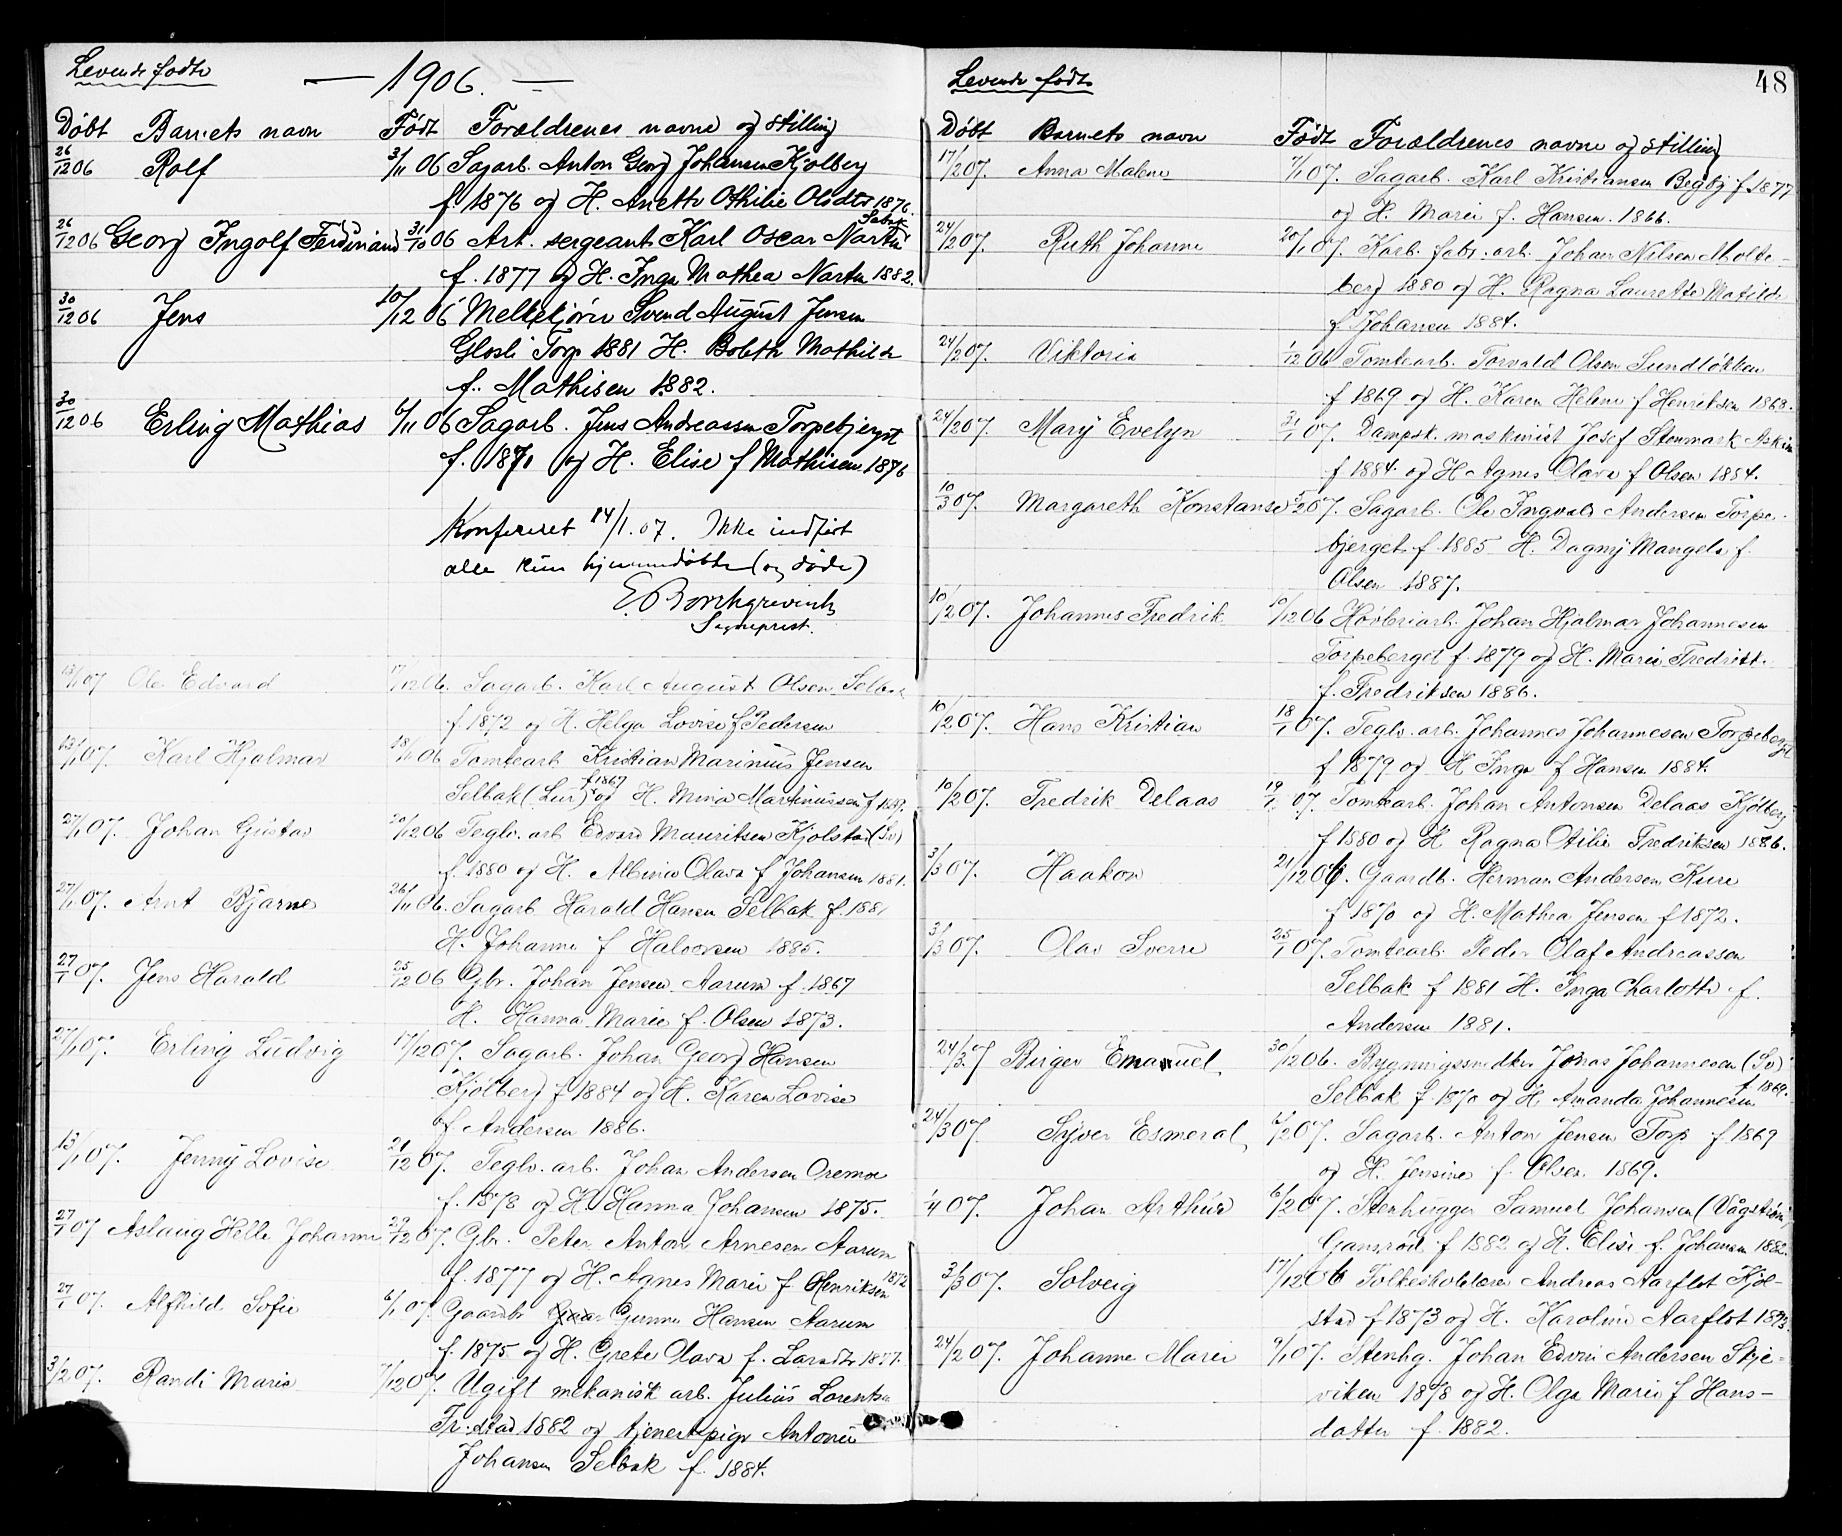 Levende fødte
— 1906. —
Döbt Barnets navn Født Forældrenes navne og stilling
26/12 06 Rolf 3/11 06 Sagarb. Anton Georg Johansen Kjølberg
f. 1876 og H. Anette Othilie Olsdtr 1876.
26/12 06 Georg Ingolf Ferdinand 31/10 06 Art. sergeant Karl Oscar Narten Selbak
f. 1877 og H. Inga Mathea Narten 1882.
30/12 06 Jens 10/12 06 Melkekjörer Svend August Jensen
Glosli Torp 1881 H. Bolette Mathilde
f. Mathisen 1882.
30/12 06 Erling Mathias 6/11 06 Sagarb. Jens Andreassen Torpebjerget
f. 1871 og H. Elise f Mathisen 1876
Konfereret 14/1.07. Ikke indført
alle kun hjemmedøbte (og døde)
E. Borchgrevink
Sogneprest.
13/1 07 Ole Edvard 17/12 06. Sagarb. Karl August Olsen Selbak
f. 1872 og H. Helga Lovise f Pedersen
13/1 07. Karl Hjalmar 18/11 06 Tomtearb Kristian Marinius Jensen
Selbak (Lur) f 1867 og H. Mina Martinussen f
27/1 07. Johan Gustav 20/12 06 Teglv. arb Edvard Mauritsen Kjølstad (Sv)
f. 1880 og H. Albinie Olava f Johansen 1881.
27/1 07. Arnt Bjarne 26/11 06. Sagarb Harald Hansen Selbak f. 1881
H. Johanne f Halvorsen 1885.
27/1 07. Jens Harald 25/12 06 Gbr. Johan Jensen Aarum f. 1867
H. Hanna Marie f. Olsen 1873.
27/1 07. Erling Ludvig 17/12 07. Sagarb. Johan Georg Hansen
Kjølberg f 1884 og H. Karen Lovise
f Andersen 1886.
13/1 07. Jenny Lovise 21/12 07. Teglv. arb. Johan Andersen Oremoe
f. 1873 og H. Hanna Johansen 1875.
27/1 07 Aslaug Helle Johanne 29/12 07. Gbr. Peter Anton Arnesen Aarum
f. 1877 og H. Agnes Marie f Henriksen 1872
27/1 07. Alfhild Sofie 6/1 07. Gaardbr Gunnar Hansen Aarum
f. 1875 og H. Grete Olava f. Larsdtr 1877.
3/2 07. Randi Marie 7/12 07. Ugift mekanisk arb. Julius Lorentsen
Fr.stad 1882 og tjenestepige Antonie
Johansen Selbak f. 1884.
Levende fødte 48
Döbt Barnets navn Født Forældrenes navne og stilling
17/2 07. Anna Malene 7/1 07. Sagarb. Karl Kristiansen Begby f 1877
og H. Marie f. Hansen. 1866.
24/2 07. Ruth Johanne 20/1 07. Karb. fabr. arb. Johan Nilsen Molte-
berg 1880 og H. Ragna Laurette Matilde
f Johansen 1884.
24/2 07. Viktoria 1/12 06 Tomtearb. Torvald Olsen Sundløkken
f 1869 og H. Karen Helene f Henriksen 1863.
24/2 07. Mary Evelyn 31/1 07. Dampsk. maskinist Josef Stenmark Askim
f 1884 og H Agnes Olava f Olsen 1884.
10/3 07. Margareth Konstanse 5/2 07. Sagarb. Ole Ingvald Andersen Torpe-
bjerget f 1885 H. Dagny Mangela f.
Olsen 1887.
10/2 07. Johannes Fredrik 10/12 06 Høvleriarb. Johan Hjalmar Johannesen
Torpeberget f. 1879 og H. Marie Fredritt.
f. Fredriksen 1886.
10/2 07. Hans Kristian 18/1 07. Teglv. arb. Johannes Johannesen Torpeberget
f 1879 og H Inga f Hansen 1884.
10/2 07. Fredrik Delaas 19/1 07. Tomtearb. Johan Antonsen Delaas Kjølberg
f 1880 og H Ragna Otilie Fredriksen 1886.
3/3 07. Haakon 21/12 06. Gaardb. Herman Andersen Kure
f 1870 og H. Mathea Jensen f 1872.
3/3 07. Olav Sverre 25/1 07. Tomtearb. Peder Olaf Andreassen
Selbak f 1881 H. Inga Charlotte f.
Andersen 1881.
24/3 07 Birger Emanuel 30/12 06. Bygningssnedker Jonas Johannesen (Sv)
Selbak f 1870 og H Amanda Johannesen f 1869.
24/3 07 Syver Esmeral 6/2 07. Sagarb. Anton Jensen Torp f 1869
og H. Jensine f. Olsen 1869.
1/4 07. Johan Arthur 6/2 07. Stenhugger Samuel Johansen (Vågstrøm)
Gansrød f 1882 og H. Elise f. Johansen 1882.
31/3 07. Solveig 17/12 06 Folkeskolelærer Andreas Aarflot Kjöl-
stad f 1873 og H. Karoline Aarflot 1873.
24/2 07. Johanne Marie 9/1 07. Stenhg. Johan Edvin Andersen Skje-
viken 1878 og H. Olga Marie f Hans-
datter f. 1882.